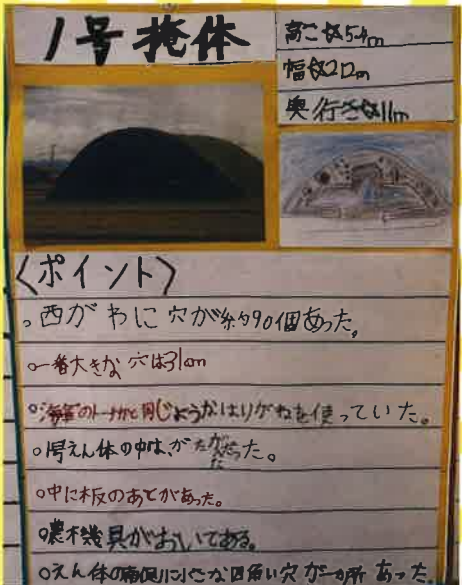 1号掩体
高さは5.4m
幅は22m
奥行きは11m
〈ポイント〉
。西がわに穴が約90個あった。
○一番大きな穴は31cm
○海軍の と同じようなはりがねを使っていた。
○1号えん体の中は、がたがただった。
○中に板のあとがあった。
○農木機具がおいてある。
○えん体の南側に小さな四角い穴が一か所あった